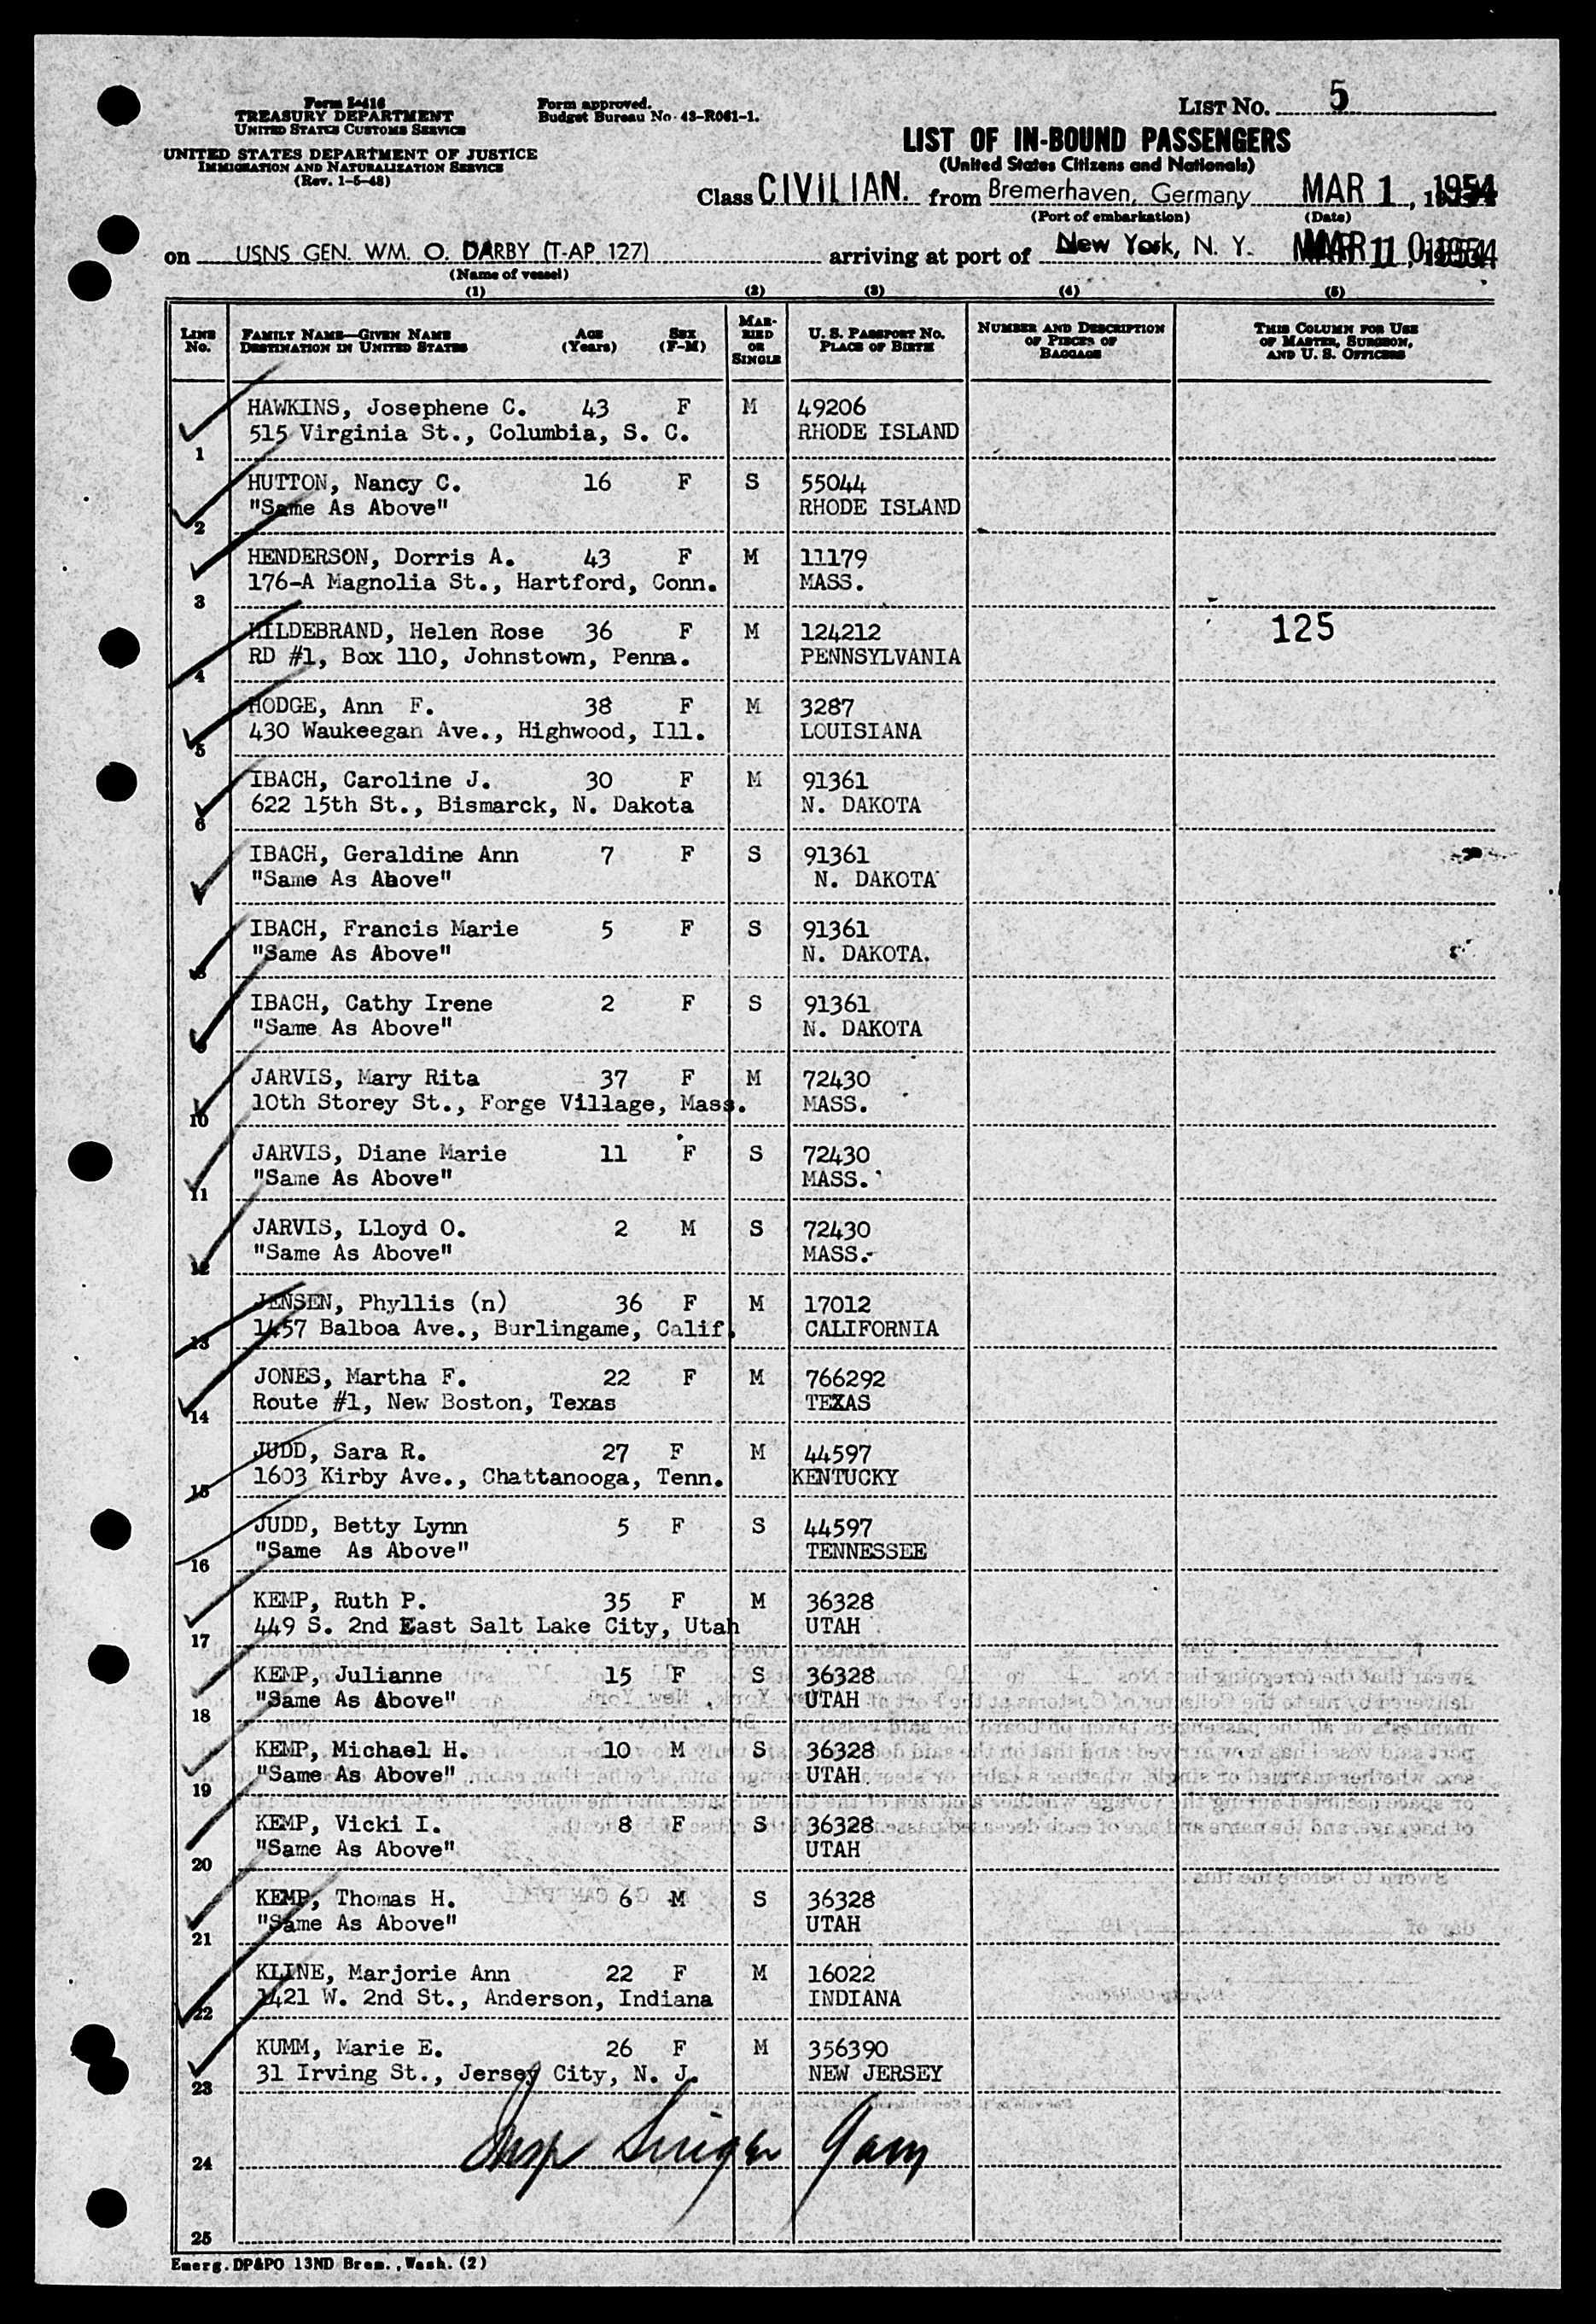 Form I-416
TREASURY DEPARTMENT
UNITED STATES CUSTOMS SERVICE
UNITED STATES DEPARTMENT OF JUSTICE
IMMIGRATION AND NATURALIZATION SERVICE
(Rev. 1-5-48)
Form approved.
Budget Bureau No. 43-R061-1.
LIST NO. 5
LIST OF IN-BOUND PASSENGERS
(United States Citizens and Nationals)
Class CIVILIAN. from Bremerhaven, Germany MAR 1, 1954
(Port of embarkation) (Date)
on USNS GEN. WM. O. DARBY (T-AP 127) arriving at port of New York, N. Y. MAR 1954
(Name of vessel)
(1) (2) (3) (4) (5)
LINE No. FAMILY NAME—GIVEN NAME DESTINATION IN UNITED STATES AGE (Years) SEX (F-M) MARRIED OR SINGLE U. S. PASSPORT NO. PLACE OF BIRTH NUMBER AND DESCRIPTION OF PIECES OF BAGGAGE THIS COLUMN FOR USE OF MASTER, SURGEON, AND U. S. OFFICERS
HAWKINS, Josephene C. 43 F M 49206
1 515 Virginia St., Columbia, S. C. RHODE ISLAND
HUTTON, Nancy C. 16 F S 55044
2 "Same As Above" RHODE ISLAND
HENDERSON, Dorris A. 43 F M 11179
3 176-A Magnolia St., Hartford, Conn. MASS.
HILDEBRAND, Helen Rose 36 F M 124212 125
4 RD #1, Box 110, Johnstown, Penna. PENNSYLVANIA
HODGE, Ann F. 38 F M 3287
5 430 Waukeegan Ave., Highwood, Ill. LOUISIANA
IBACH, Caroline J. 30 F M 91361
6 622 15th St., Bismarck, N. Dakota N. DAKOTA
IBACH, Geraldine Ann 7 F S 91361
"Same As Above" N. DAKOTA
IBACH, Francis Marie 5 F S 91361
8 "Same As Above" N. DAKOTA.
IBACH, Cathy Irene 2 F S 91361
9 "Same As Above" N. DAKOTA
JARVIS, Mary Rita 37 F M 72430
10 10th Storey St., Forge Village, Mass. MASS.
JARVIS, Diane Marie 11 F S 72430
11 "Same As Above" MASS.
JARVIS, Lloyd O. 2 M S 72430
12 "Same As Above" MASS.
JENSEN, Phyllis (n) 36 F M 17012
13 1457 Balboa Ave., Burlingame, Calif. CALIFORNIA
JONES, Martha F. 22 F M 766292
14 Route #1, New Boston, Texas TEXAS
JUDD, Sara R. 27 F M 44597
15 1603 Kirby Ave., Chattanooga, Tenn. KENTUCKY
JUDD, Betty Lynn 5 F S 44597
16 "Same As Above" TENNESSEE
KEMP, Ruth P. 35 F M 36328
17 449 S. 2nd East Salt Lake City, Utah UTAH
KEMP, Julianne 15 F S 36328
18 "Same As Above" UTAH
KEMP, Michael H. 10 M S 36328
19 "Same As Above" UTAH
KEMP, Vicki I. 8 F S 36328
20 "Same As Above" UTAH
KEMP, Thomas H. 6 M S 36328
21 "Same As Above" UTAH
KLINE, Marjorie Ann 22 F M 16022
22 1421 W. 2nd St., Anderson, Indiana INDIANA
KUMM, Marie E. 26 F M 356390
23 31 Irving St., Jersey City, N. J. NEW JERSEY
24 Insp
25
Emerg. DP&PO 13ND Brem., Wash. (2)